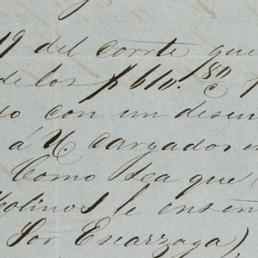 19 del corrte que
de los $610.80
do con un desen
á 4 cargadores en
Como sea que
Molinos le enseñ
Sor Enarzaga),